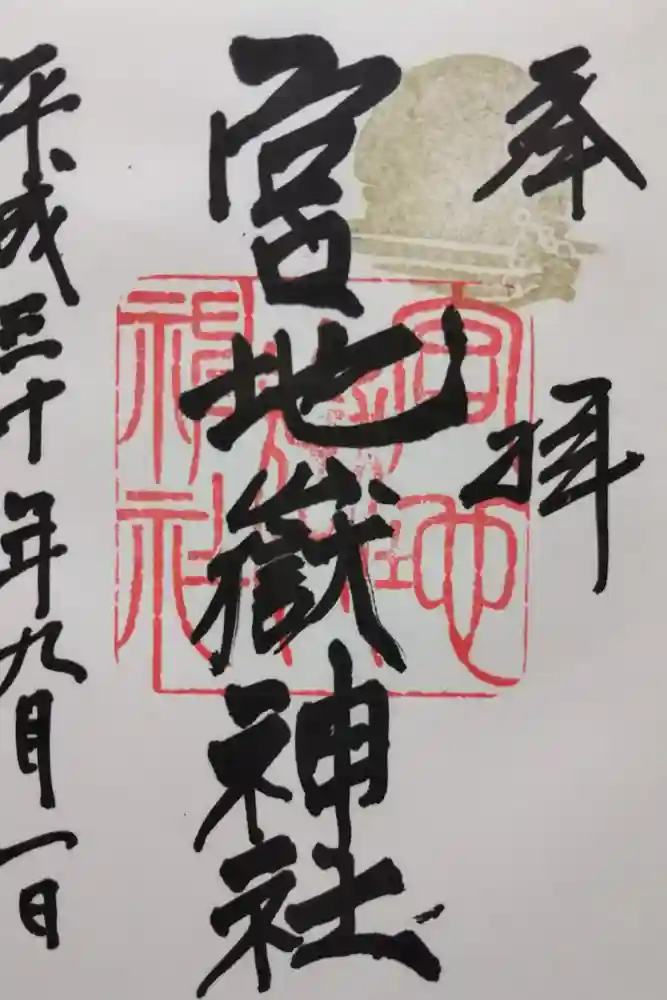 奉拝
宮地嶽神社
平成三十年九月一日
宮地嶽神社